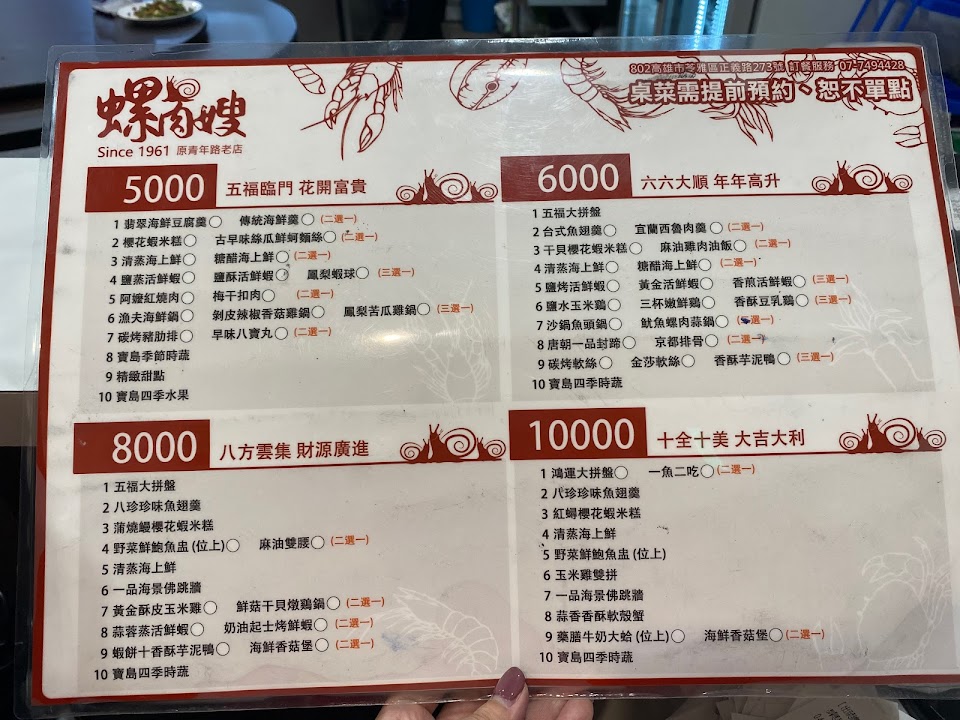 802高雄市苓雅區正義路273號 訂餐服務 07-7494428
桌菜需提前預約、恕不單點
螺肉嫂
Since 1961 原青年路老店
5000 五福臨門 花開富貴
1 翡翠海鮮豆腐羹○ 傳統海鮮羹○ (二選一)
2 櫻花蝦米糕○ 古早味絲瓜鮮蚵麵絲○ (二選一)
3 清蒸海上鮮○ 糖醋海上鮮○ (二選一)
4 鹽蒸活鮮蝦○ 鹽酥活鮮蝦○ 鳳梨蝦球○ (三選一)
5 阿嬤紅燒肉○ 梅干扣肉○ (二選一)
6 漁夫海鮮鍋○ 剝皮辣椒香菇雞鍋○ 鳳梨苦瓜雞鍋○ (三選一)
7 碳烤豬肋排○ 早味八寶丸○ (二選一)
8 寶島季節時蔬
9 精緻甜點
10 寶島四季水果
6000 六六大順 年年高升
1 五福大拼盤
2 台式魚翅羹○ 宜蘭西魯肉羹○ (二選一)
3 干貝櫻花蝦米糕○ 麻油雞肉油飯○ (二選一)
4 清蒸海上鮮○ 糖醋海上鮮○ (二選一)
5 鹽烤活鮮蝦○ 黃金活鮮蝦○ 香煎活鮮蝦○ (三選一)
6 鹽水玉米鷄○ 三杯嫩鮮鷄○ 香酥豆乳鷄○ (三選一)
7 沙鍋魚頭鍋○ 魷魚螺肉蒜鍋○ (二選一)
8 唐朝一品封蹄○ 京都排骨○ (二選一)
9 碳烤軟絲○ 金莎軟絲○ 香酥芋泥鴨○ (三選一)
10 寶島四季時蔬
8000 八方雲集 財源廣進
1 五福大拼盤
2 八珍珍味魚翅羹
3 蒲燒鰻櫻花蝦米糕
4 野菜鮮鮑魚盅 (位上)○ 麻油雙腰○ (二選一)
5 清蒸海上鮮
6 一品海景佛跳牆
7 黃金酥皮玉米雞○ 鮮菇干貝燉鷄鍋○ (二選一)
8 蒜蓉蒸活鮮蝦○ 奶油起士烤鮮蝦○ (二選一)
9 蝦餅十香酥芋泥鴨○ 海鮮香菇堡○ (二選一)
10 寶島四季時蔬
10000 十全十美 大吉大利
1 鴻運大拼盤○ 一魚二吃○ (二選一)
2 八珍珍味魚翅羹
3 紅蟳櫻花蝦米糕
4 清蒸海上鮮
5 野菜鮮鮑魚盅 (位上)
6 玉米雞雙拼
7 一品海景佛跳牆
8 蒜香香酥軟殼蟹
9 藥膳牛奶大蛤 (位上)○ 海鮮香菇堡○ (二選一)
10 寶島四季時蔬